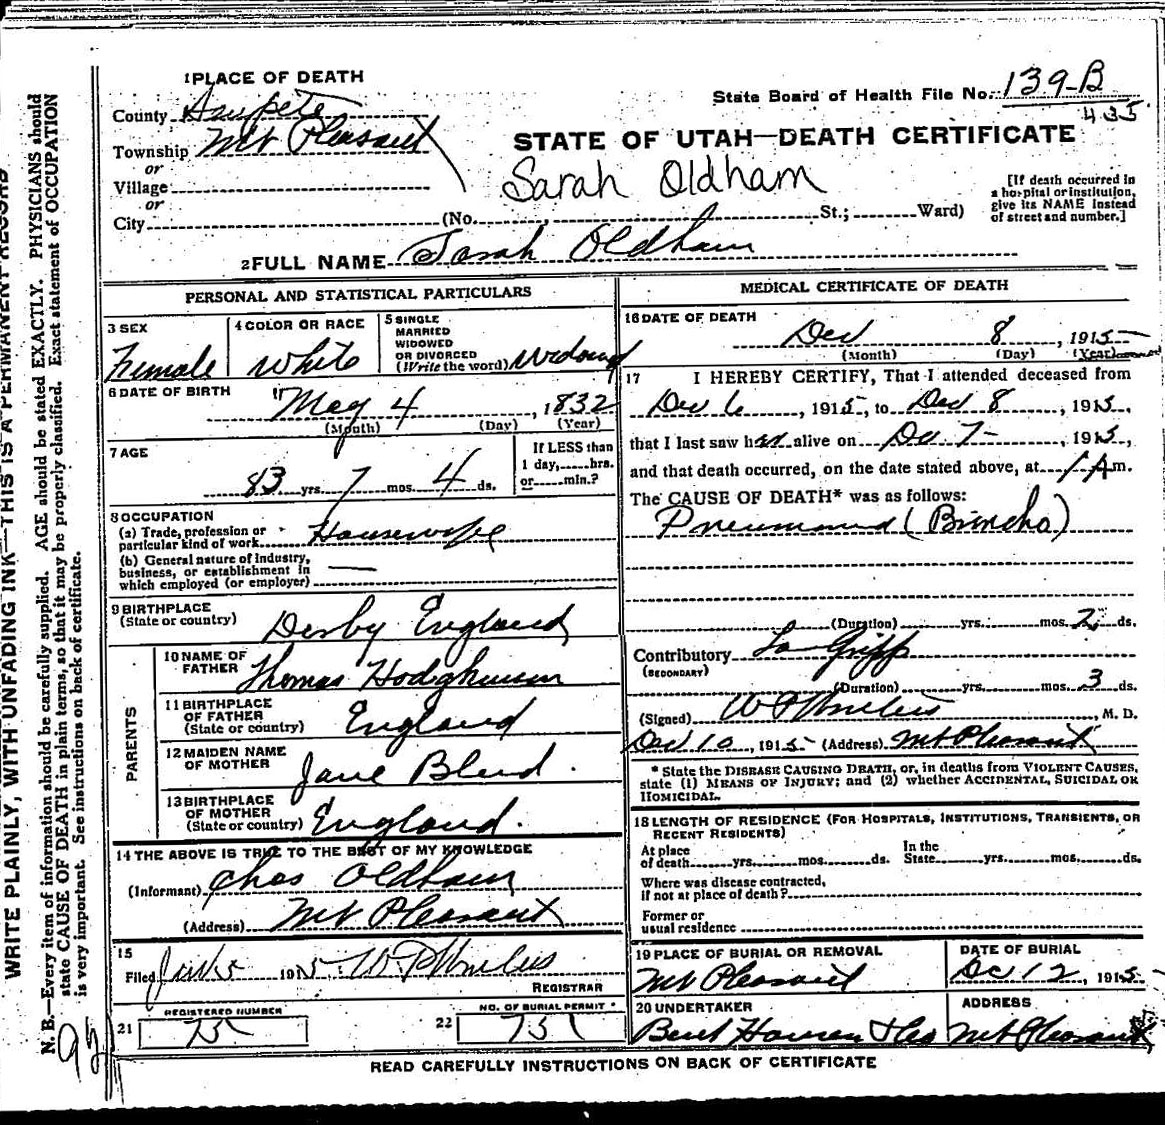 1 PLACE OF DEATH
County Sanpete
Township Mt Pleasant
or
Village
or
City (No. St.; Ward)
State Board of Health File No. 139-B
435
STATE OF UTAH—DEATH CERTIFICATE
Sarah Oldham
[If death occurred in
a hospital or institution,
give its NAME instead
of street and number.]
2 FULL NAME Sarah Oldham
PERSONAL AND STATISTICAL PARTICULARS
3 SEX
Female
4 COLOR OR RACE
White
5 SINGLE
MARRIED
WIDOWED
OR DIVORCED
(Write the word) Widowed
6 DATE OF BIRTH
May 4, 1832
(Month) (Day) (Year)
7 AGE
83 yrs. 7 mos. 4 ds.
If LESS than
1 day, hrs.
or min.?
8 OCCUPATION
(a) Trade, profession or
particular kind of work Housewife
(b) General nature of industry,
business, or establishment in
which employed (or employer)
9 BIRTHPLACE
(State or country) Derby England
PARENTS
10 NAME OF
FATHER Thomas
11 BIRTHPLACE
OF FATHER
(State or country) England
12 MAIDEN NAME
OF MOTHER Jane
13 BIRTHPLACE
OF MOTHER
(State or country) England.
14 THE ABOVE IS TRUE TO THE BEST OF MY KNOWLEDGE
(Informant) Chas Oldham
(Address) Mt Pleasant
15
Filed 191
REGISTRAR
REGISTERED NUMBER
21 75
NO. OF BURIAL PERMIT *
22 751
MEDICAL CERTIFICATE OF DEATH
16 DATE OF DEATH
Dec 8, 1915
(Month) (Day) (Year)
17 I HEREBY CERTIFY, That I attended deceased from
Dec 6, 1915, to Dec 8, 1915,
that I last saw her alive on Dec 7-, 1915,
and that death occurred, on the date stated above, at 1 A m.
The CAUSE OF DEATH* was as follows:
Pneumonia (Broncho)
(Duration) yrs. mos. 2 ds.
Contributory La Gripp
(SECONDARY)
(Duration) yrs. mos. 3 ds.
(Signed) , M. D.
Dec 10, 1915 (Address) Mt Pleasant
* State the DISEASE CAUSING DEATH, or, in deaths from VIOLENT CAUSES,
state (1) MEANS OF INJURY; and (2) whether ACCIDENTAL, SUICIDAL OR
HOMICIDAL.
18 LENGTH OF RESIDENCE (FOR HOSPITALS, INSTITUTIONS, TRANSIENTS, OR
RECENT RESIDENTS)
At place
of death yrs. mos. ds.
In the
State yrs. mos. ds.
Where was disease contracted,
if not at place of death?
Former or
usual residence
19 PLACE OF BURIAL OR REMOVAL
Mt Pleasant
DATE OF BURIAL
Dec 12, 1915
20 UNDERTAKER
Hansen & Co
ADDRESS
Mt Pleasant
READ CAREFULLY INSTRUCTIONS ON BACK OF CERTIFICATE
WRITE PLAINLY, WITH UNFADING INK—THIS IS A PERMANENT RECORD
N. B.—Every item of information should be carefully supplied. AGE should be stated EXACTLY. PHYSICIANS should
state CAUSE OF DEATH in plain terms, so that it may be properly classified. Exact statement of OCCUPATION
is very important. See instructions on back of certificate.